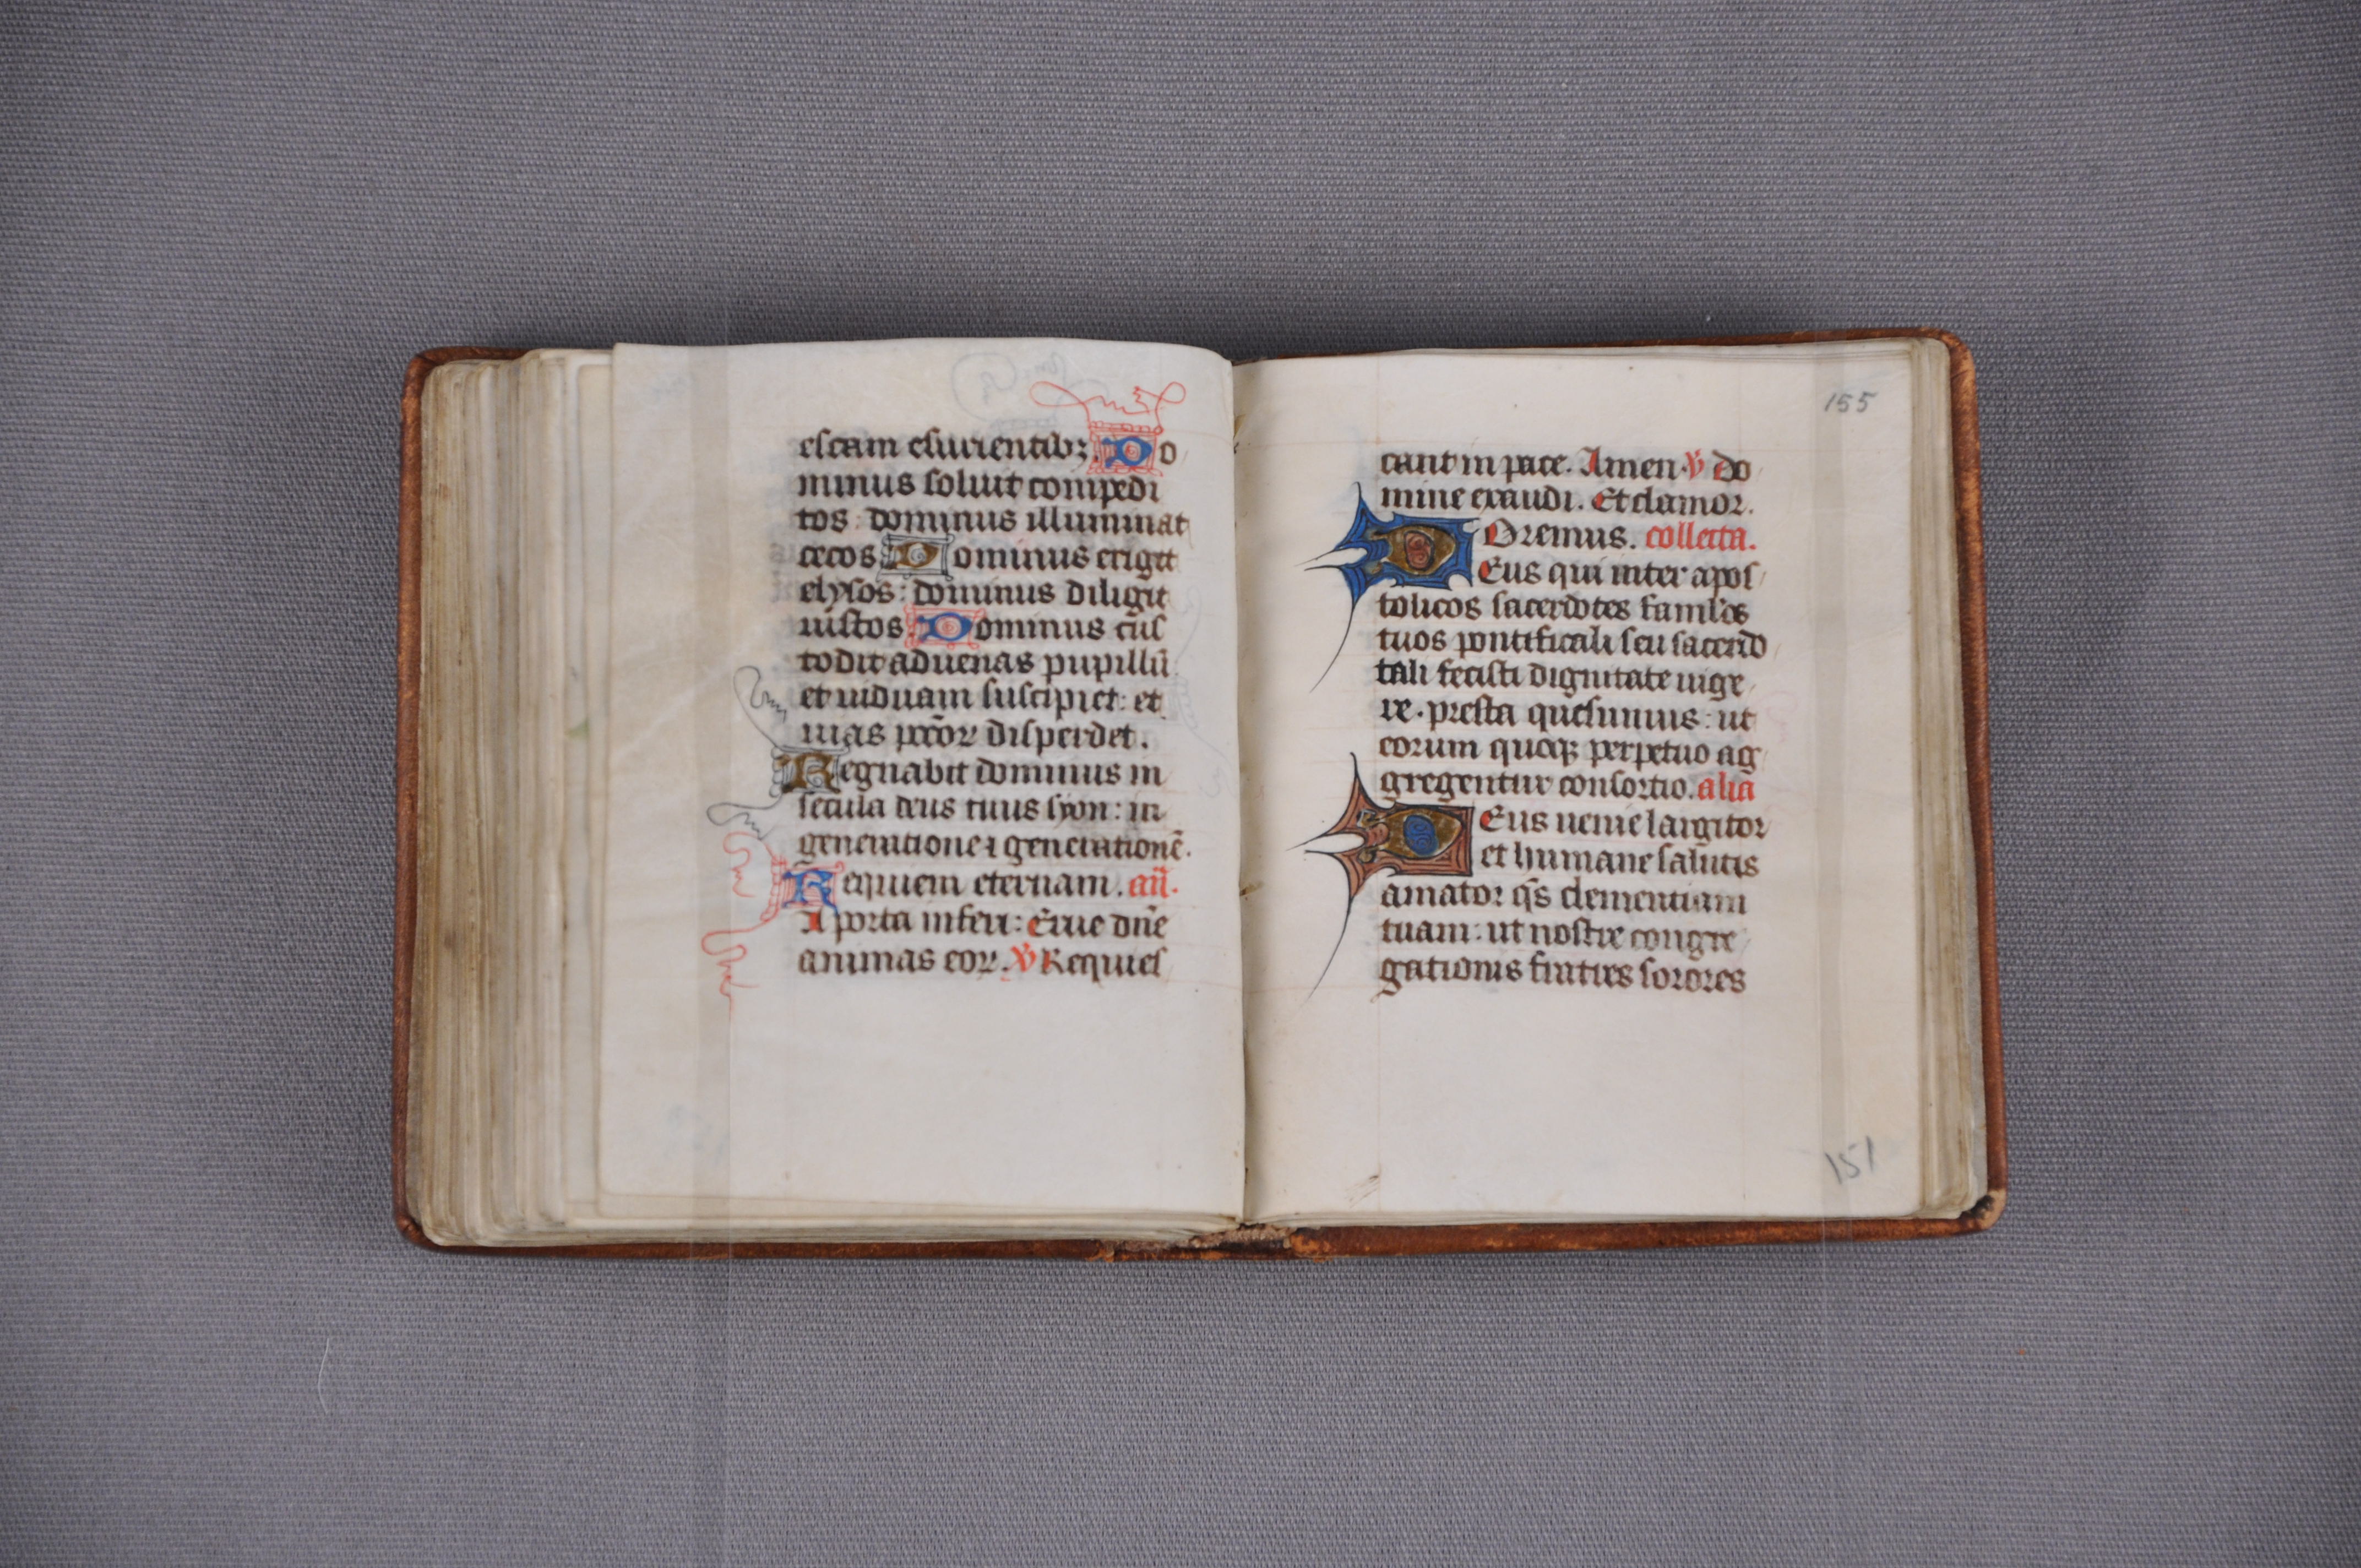 escam esurientibꝫ. Do
minus soluit compedi
tos: dominus illuminat
cecos Dominus erigit
elysos: dominus diligit
iustos Dominus cus
todit aduenas pupillū
et uiduam suscipiet: et
uias pccōꝝ disperdet.
Regnabit dominus in
secula deus tuus syon: in
generatione ⁊ generationē.
Requiem eternam. añ.
A porta inferi: Erue dñe
animas eoꝝ. ℣ Requies
155
cant in pace. Amen. ℣ do
mine exaudi. Et clamor.
Oremus. collecta.
Deus qui inter apos
tolicos sacerdotes famlos
tuos pontificali seu sacerdo
tali fecisti dignitate uige
re. presta quesumus: ut
eorum quoqꝫ perpetuo ag
gregentur consortio. alia
Deus uenie largitor
et humane salutis
amator qs̄ clementiam
tuam: ut nostre congre
gationis fratres sorores
151